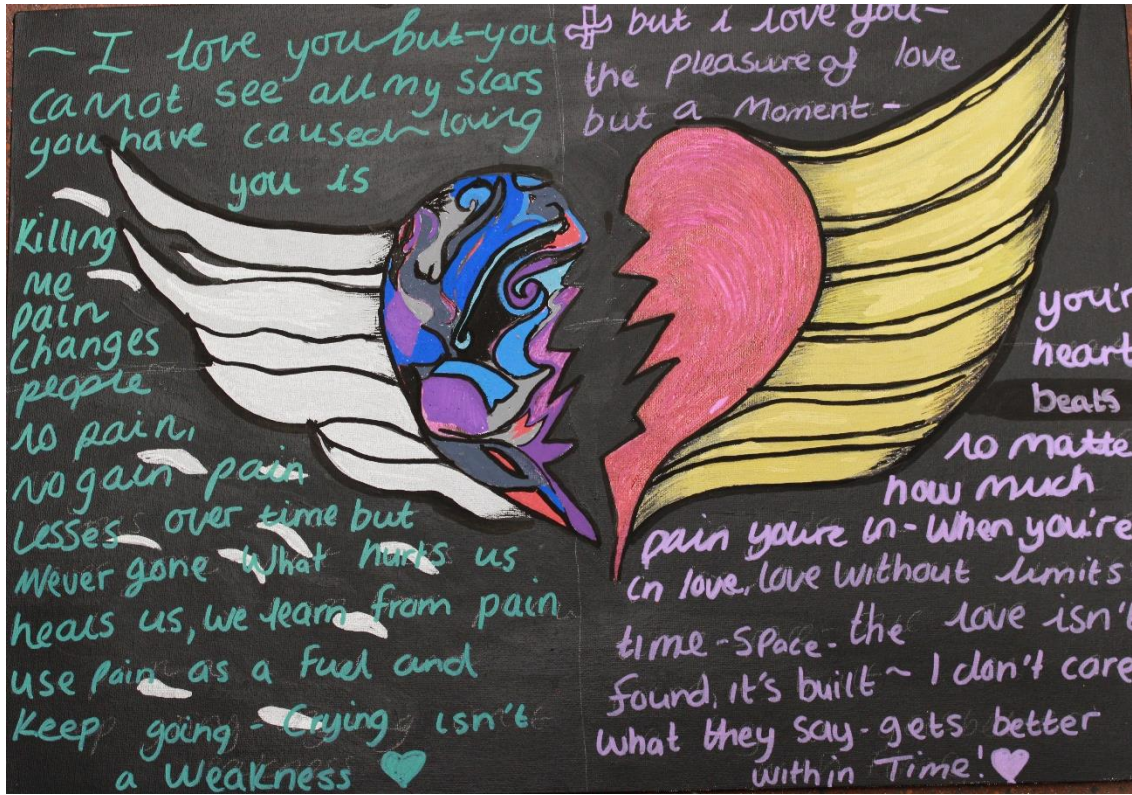 ~ I love you but-you
cannot see all my scars
you have caused~loving
you is
Killing
me
pain
changes
people
no pain,
no gain pain
Lesses over time but
Never gone What hurts us
heals us, we learn from pain
use pain as a fuel and
Keep going - Crying isn't
a Weakness
but i love you-
the pleasure of love
but a Moment-
you'r
heart
beats
no matte
how much
pain youre in-When you're
in love, love without limits
time-space-the love isn't
found, it's built~ I don't care
what they say-gets better
within Time!